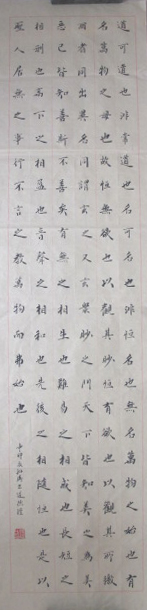 道可道也非常道也名可名也非名也無名萬物之始也有
名萬物之母也故恒無欲也以觀其妙恒有欲也以觀其所徼
兩者同出異名同謂玄之又玄眾妙之門天下皆知美之為美
惡已皆知善斯不善矣有無之相生也難易之相成也長短之
相刑也高下之相盈也音聲之相和也先後之相隨恒也是以
聖人居無之事行不言之教萬物而弗始也